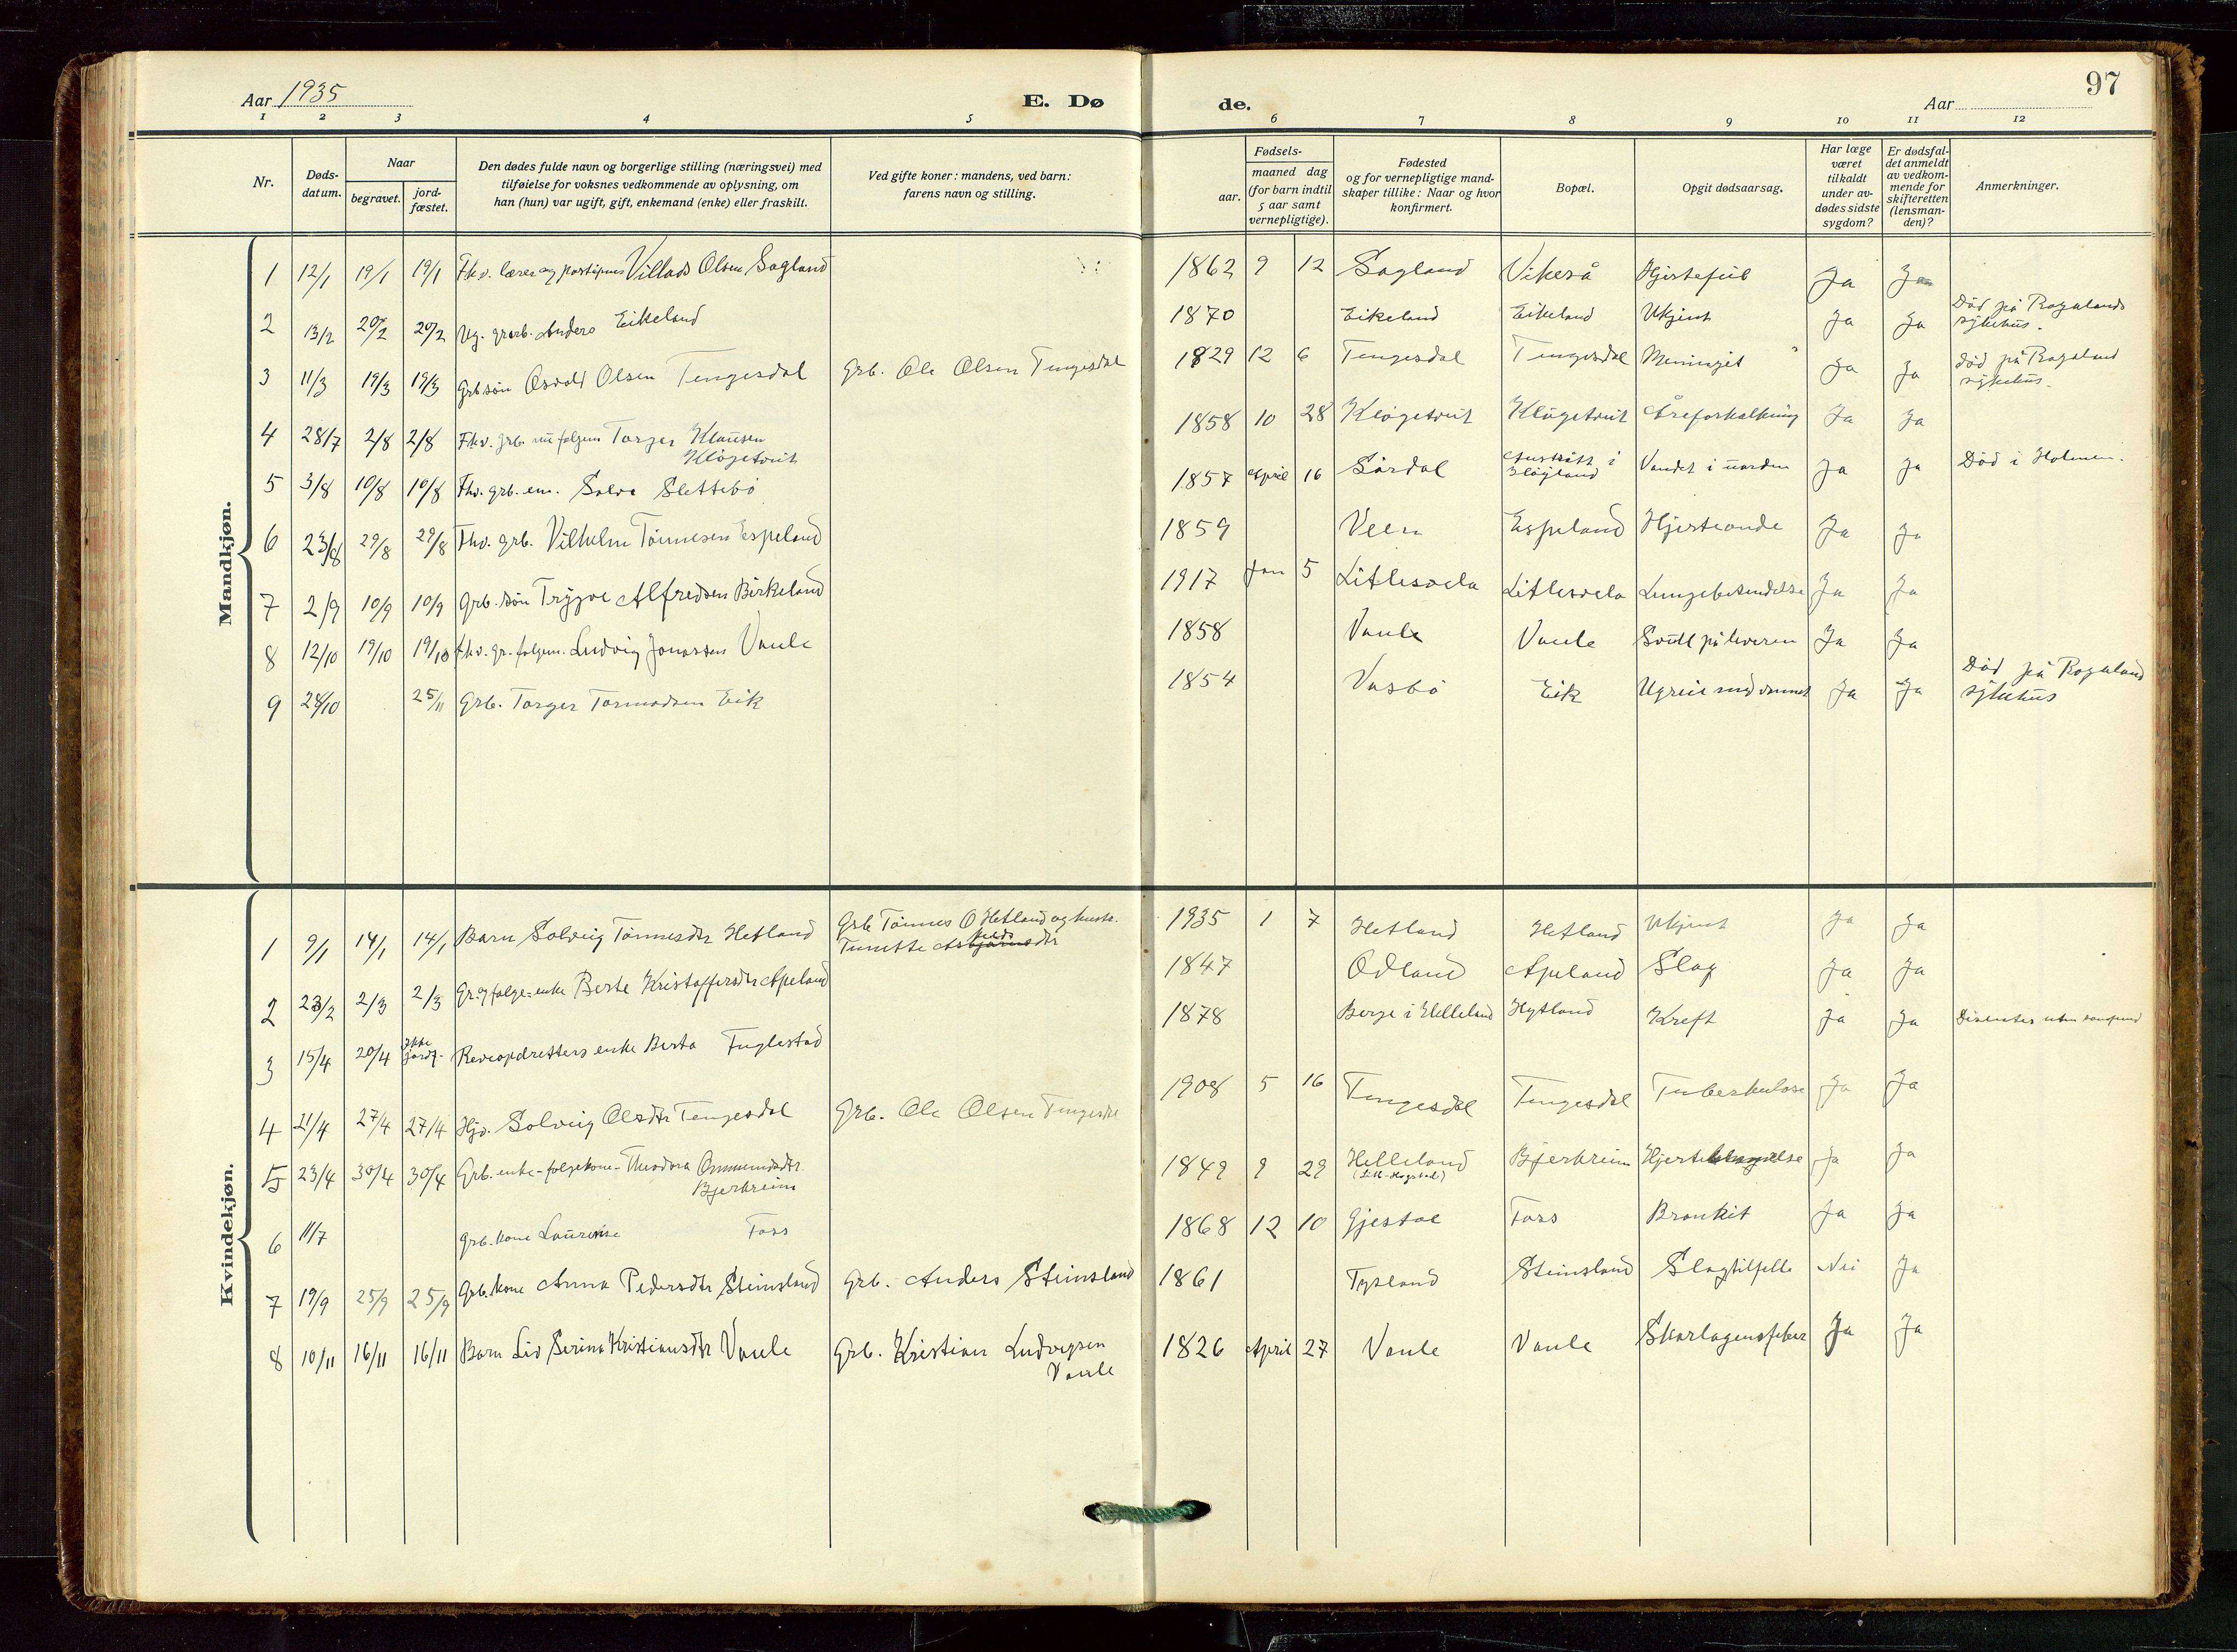 Aar 1935
E. Dø
de.
Aar
97
1 2 3 4 5 6 7 8 9 10 11 12
Nr.
Døds-
datum.
Naar
begravet.
jord-
fæstet.
Den dødes fulde navn og borgerlige stilling (næringsvei) med
tilføielse for voksnes vedkommende av oplysning, om
han (hun) var ugift, gift, enkemand (enke) eller fraskilt.
Ved gifte koner: mandens, ved barn:
farens navn og stilling.
Fødsels-
aar.
maaned dag
(for barn indtil
5 aar samt
vernepligtige).
Fødested
og for vernepligtige mand-
skaper tillike: Naar og hvor
konfirmert.
Bopæl.
Opgit dødsaarsag.
Har læge
været
tilkaldt
under av-
dødes sidste
sygdom?
Er dødsfal-
det anmeldt
av vedkom-
mende for
skifteretten
(lensman-
den)?
Anmerkninger.
Mandkjøn.
1 12/1 19/1 19/1 Fhv. lærer og Villads Olsen Sagland 1862 9 12 Sagland Vikeså Hjertefeil Ja Ja
2 13/2 20/2 20/2 Ug. grarb. Anders Eikeland 1870 Eikeland Eikeland Ukjent Ja Ja Död på Rogalands
sykehus.
3 11/3 19/3 19/3 Grb sön Osvald Olsen Tengesdal Grb. Ole Olsen Tengesdal 1829 12 6 Tengesdal Tengesdal Meningit Ja Ja död på Rogaland
sykehus.
4 28/7 2/8 2/8 Fhv. grb. nu folgem Torger Klausen
Klögetveit 1858 10 28 Klögetveit Klögetveit Åreforkalkning Ja Ja
5 3/8 10/8 10/8 Fhv. grb. em. Salve Slettebö 1857 April 16 Sårdal i
Högland Vandet i Ja Ja Död i Holmen.
6 23/8 29/8 29/8 Fhv. grb. Vilhelm Tönnesen Espeland 1859 Veen Espeland Hjerteonde Ja Ja
7 2/9 10/9 10/9 Grb. sön Trygve Alfredsen Birkeland 1917 Jan 5 Litlesvela Litlesvela Lungebetendelse Ja Ja
8 12/10 19/10 19/10 fhv. gr. folgem. Ludvig Jonassen Vaule 1858 Vaule Vaule Svull på leveren Ja Ja
9 28/10 25/11 Grb. Torger Tormodsen Eik 1854 Vasbö Eik Ugreie med vannet Ja Ja Död på Rogaland
sykehus
Kvindekjøn.
1 9/1 14/1 14/1 Barn Solveig Tönnesdtr Hetland Grb Tönnes O Hetland og hustr.
Tunette dtr 1935 1 7 Hetland Hetland Ukjent Ja Ja
2 23/2 2/3 2/3 Gr. og folge-enke Berte Kristoffersdtr Apeland 1847 Odland Apeland Slag Ja Ja
3 15/4 20/4 ikke
jordf. Reveopdretters enke Berta Fuglestad 1878 Berge i Helleland Hytland Kreft Ja Ja Disenter uten samfund
4 21/4 27/4 27/4 Hjv. Solveig Olsdtr Tengesdal Grb. Ole Olsen Tengesdal 1908 5 16 Tengesdal Tengesdal Tuberkulose Ja Ja
5 23/4 30/4 30/4 Grb. enke - folgekone - Theodora Ommundsdtr
Bjerkreim 1849 9 29 Helleland
Bjerkreim Ja Ja
6 11/7 Grb. kone Laurense Foss 1868 12 10 Gjestoe Foss Bronkit Ja Ja
7 19/9 25/9 25/9 Grb. kone Anna Pedersdtr Steinsland Grb. Anders Steinsland 1861 Tysland Steinsland Slagtilfelle Nei Ja
8 10/11 16/11 16/11 Barn Liv Serina Kristiansdtr Vaule Grb. Kristian Ludvigsen
Vaule 1826 April 27 Vaule Vaule Skarlagensfeber Ja Ja